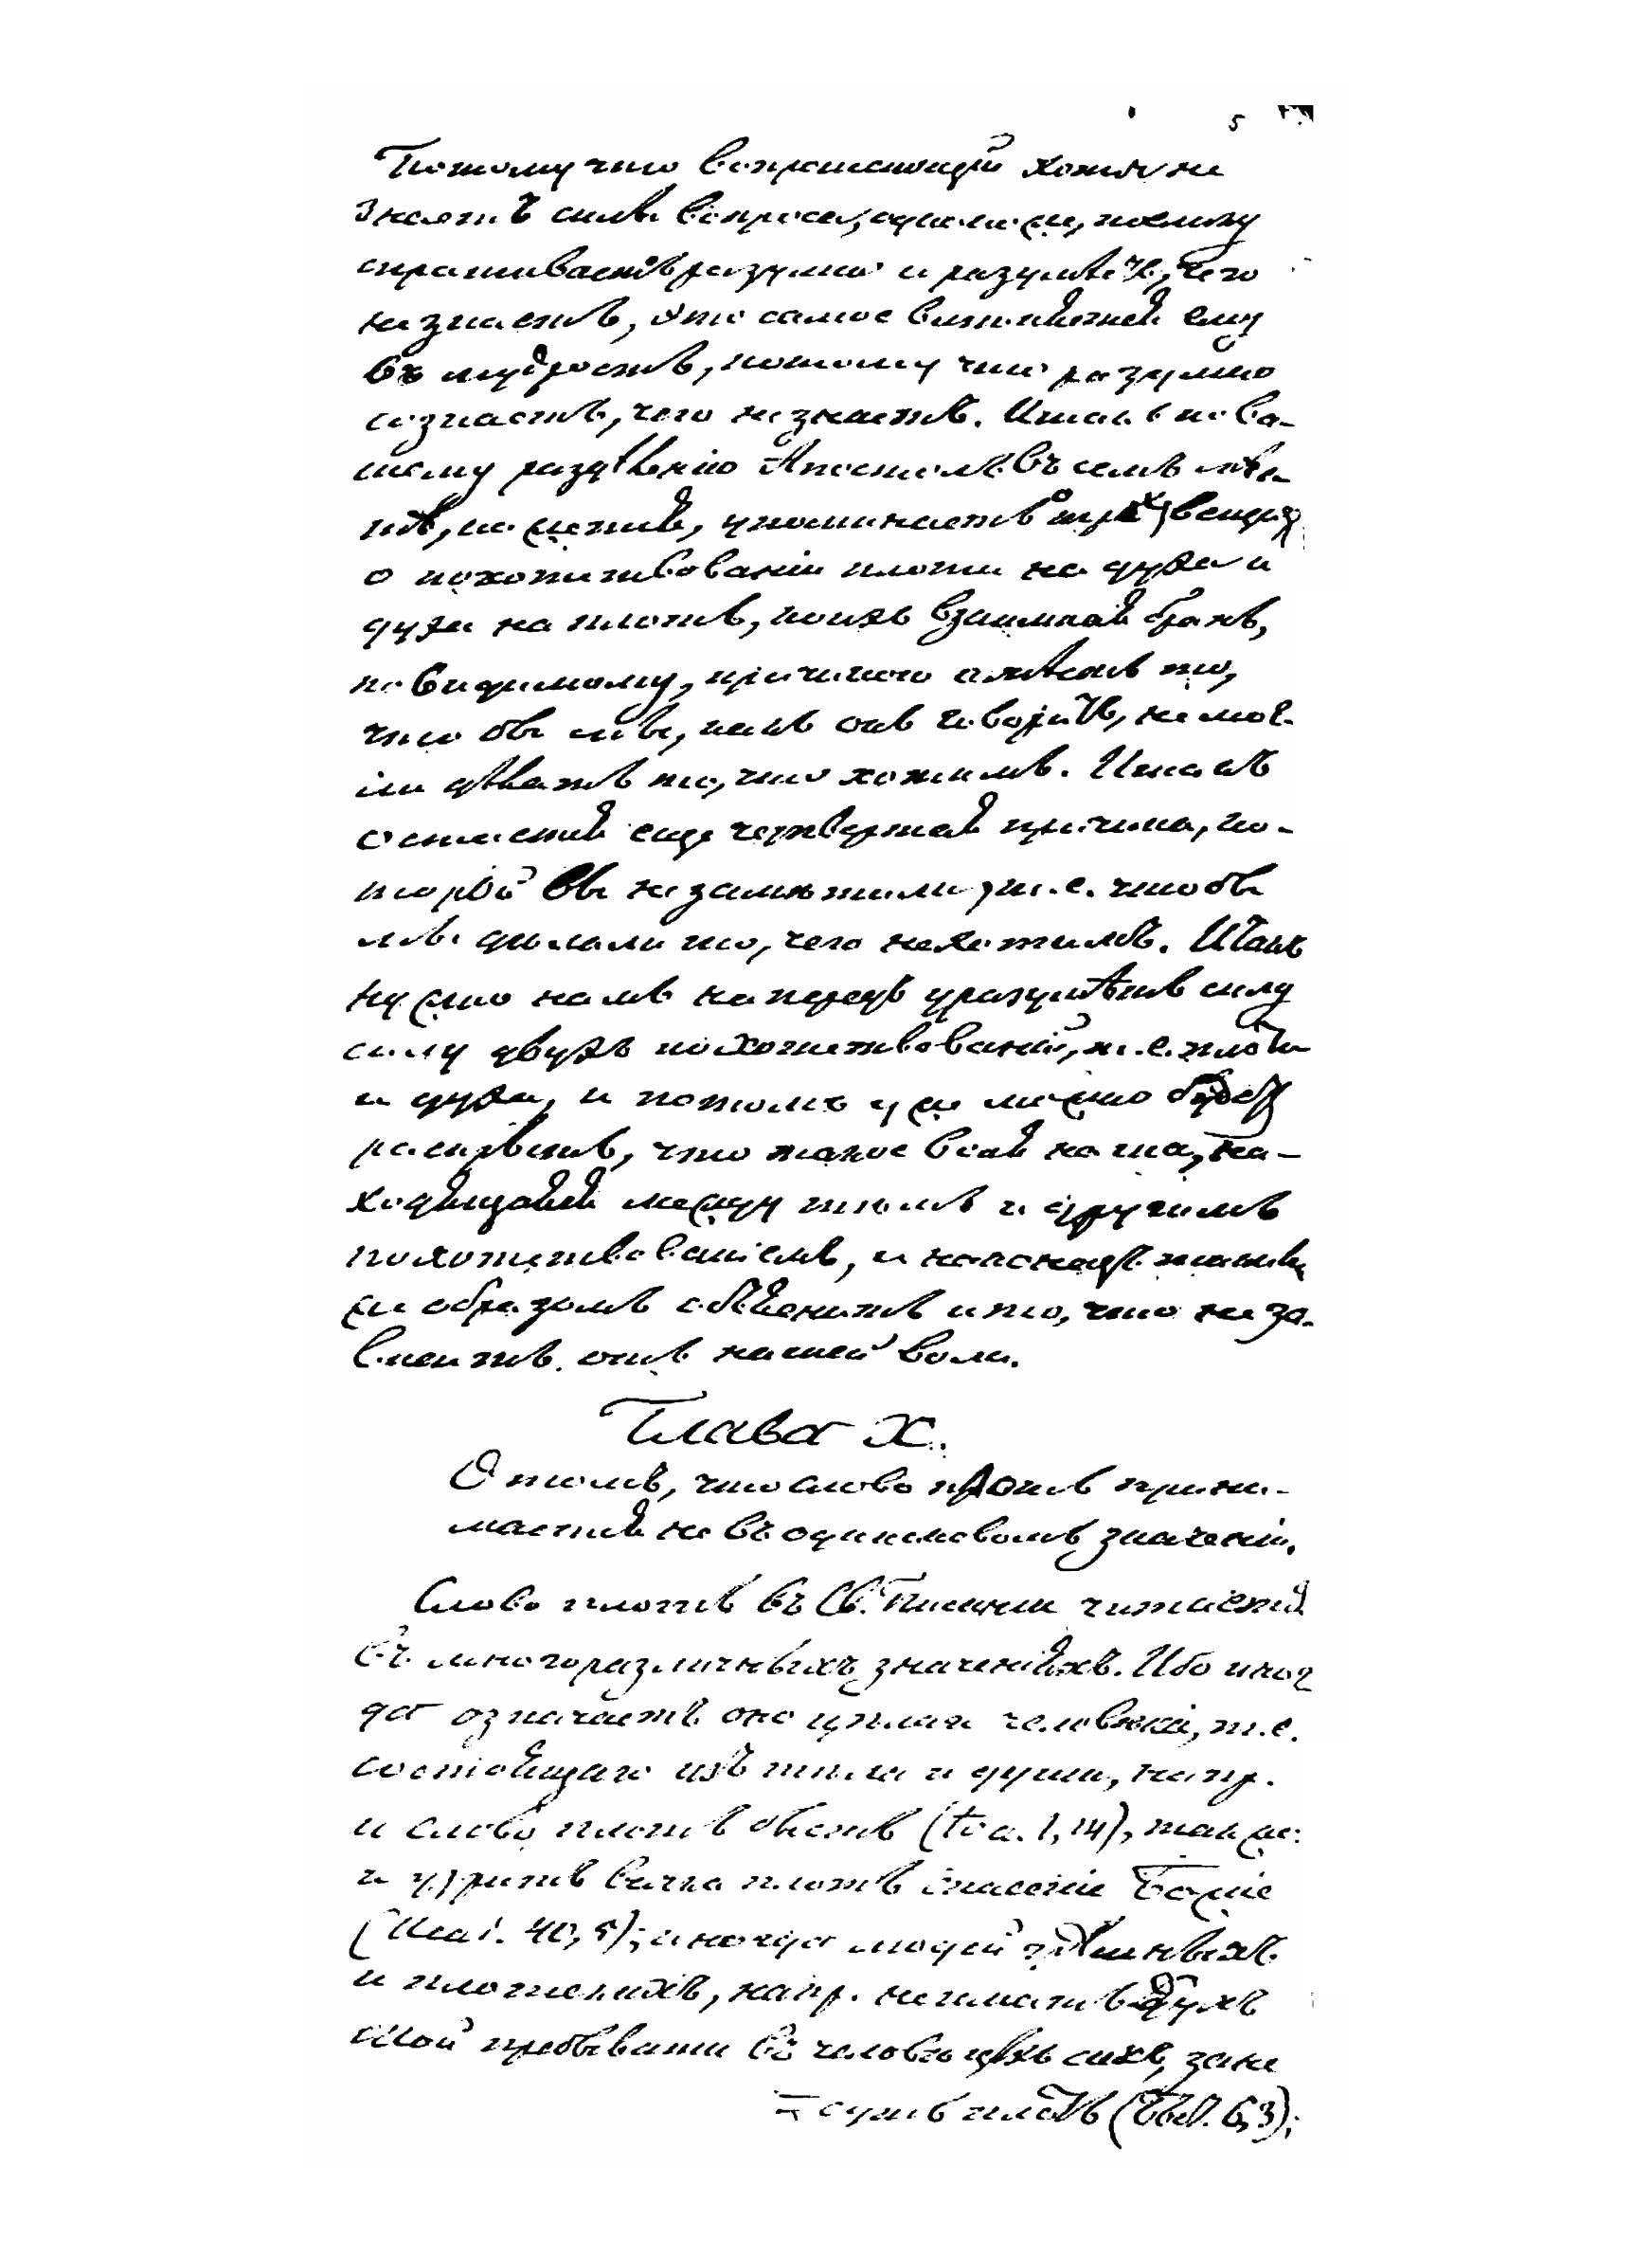 5
Потому что вопрошающій хотя и не
знаетъ силы вопроса, однакоже, поелику
спрашиваетъ разумно и разумѣетъ, чего
не знаетъ, это самое вмѣняется ему
въ мудрость, потому что разумно
сознаетъ, чего не знаетъ. Итакъ по ва-
шему раздѣленію Апостолъ въ семъ мѣс-
тѣ, кажется, упоминаетъ о трехъ вещахъ:
о похотствованіи плоти на духа и
духа на плоть, коихъ взаимная брань,
повидимому, причиною имѣетъ то,
чтобы мы, какъ онъ говоритъ, не мог-
ли дѣлать то, что хотимъ. Итакъ
остается еще четвертая причина, ко-
торой вы не замѣтили, т.е. чтобы
мы дѣлали то, чего не хотимъ. Итакъ
нужно намъ напередъ уразумѣть силу
силу двухъ похотствованій, т.е. плоти
и духа, и потомъ уже можно будетъ
раскрыть, что такое воля наша, на-
ходящаяся между тѣмъ и другимъ
похотствованіемъ, и наконецъ такимъ
же образомъ объяснить и то, что не за-
виситъ отъ нашей воли.
Глава X.
О томъ, что слово плоть прини-
мается не въ одинаковомъ значеніи.
Слово плоть въ Св. Писаніи читается
въ многоразличныхъ значеніяхъ. Ибо иног
да означаетъ оно цѣлаго человѣка, т.е.
состоящаго изъ тѣла и души, напр.
и слово плоть бысть (Іоа. 1, 14), также:
и узритъ всяка плоть спасеніе Божіе
(Исаі. 40, 5); иногда людей грѣшныхъ
и плотскихъ, напр. не имать духъ
Мой пребывати въ человѣцѣхъ сихъ, зане
суть плоть (Быт. 6, 3);